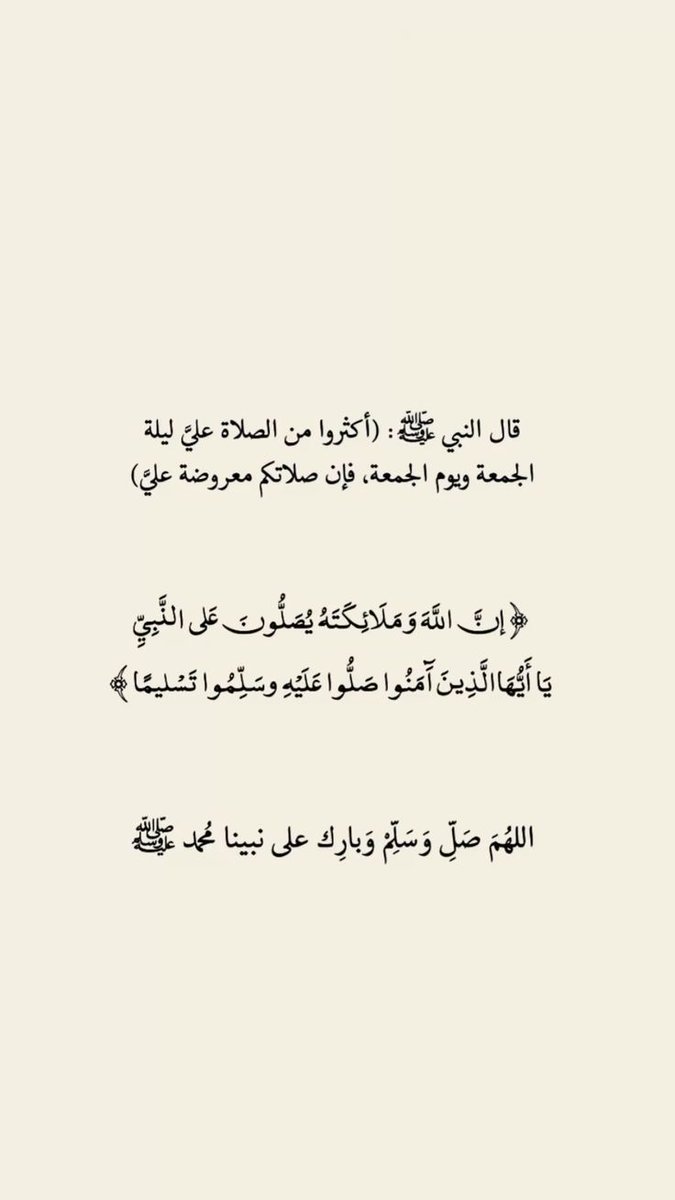 قال النبي ﷺ: (أكثروا من الصلاة عليَّ ليلة
الجمعة ويوم الجمعة، فإن صلاتكم معروضة عليَّ)
﴿إنَّ اللَّهَ وَمَلَائِكَتَهُ يُصَلُّونَ عَلى النَّبِيِّ
يَا أَيُّهَا الَّذِينَ آمَنُوا صَلُّوا عَلَيْهِ وسَلِّمُوا تَسْليمًا﴾
اللهُمَ صَلِّ وَسَلِّمْ وَبارِك على نبينا مُحمد ﷺ